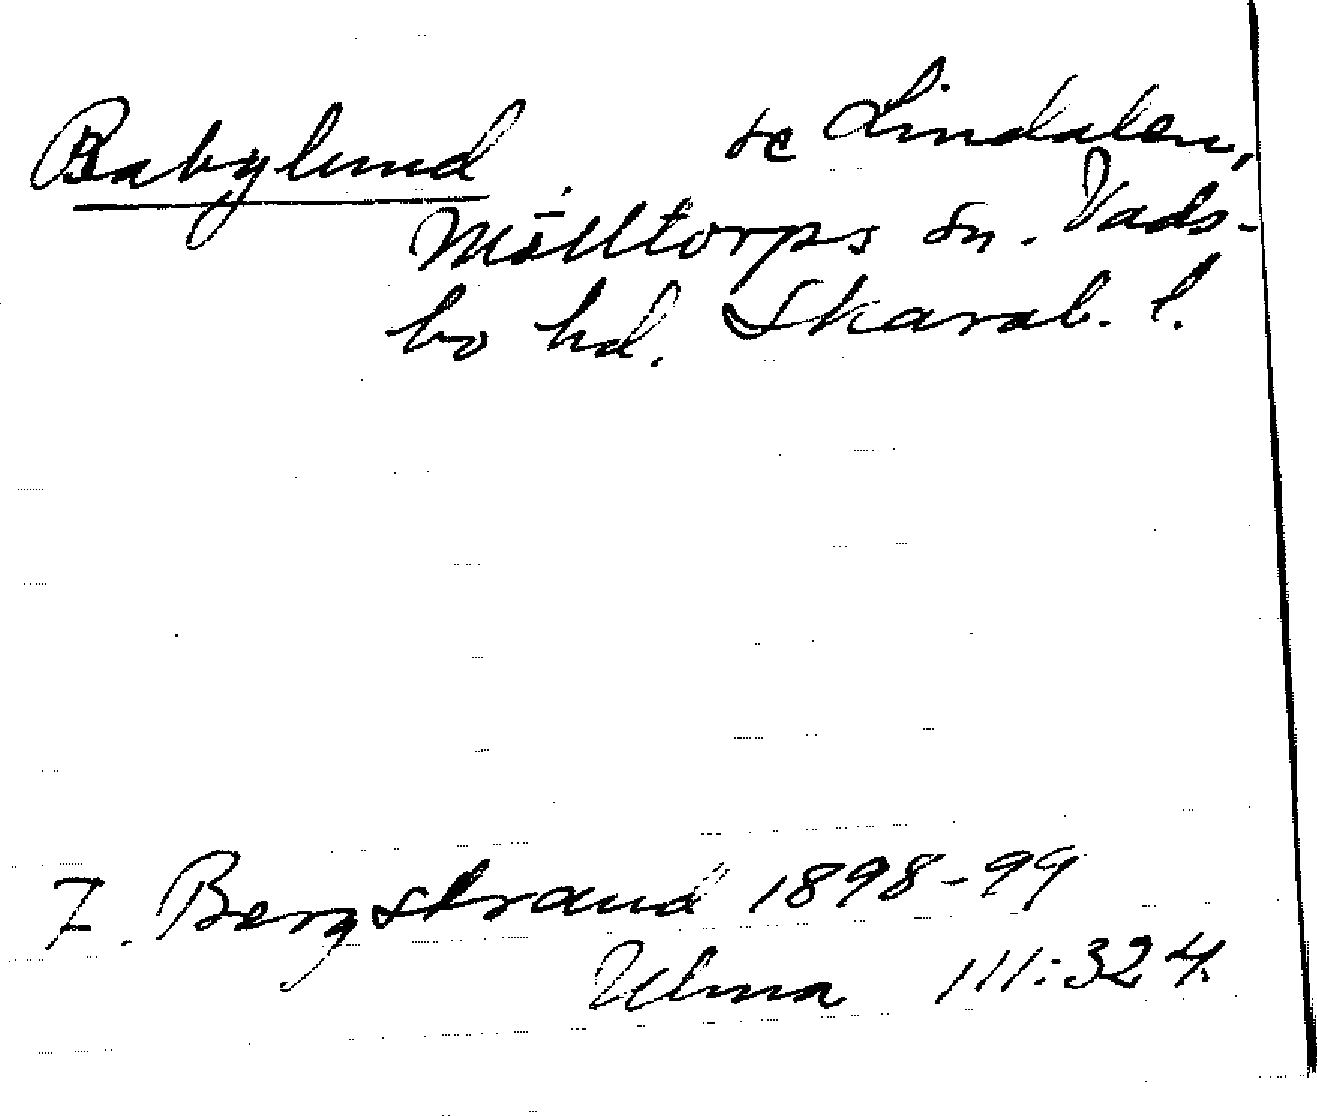 Babylund se Lindalen,
Mölltorps sn. Vads-
bo hd. Skarab. l.
F. Bergstrand 1898-99
Ulma 111:324.